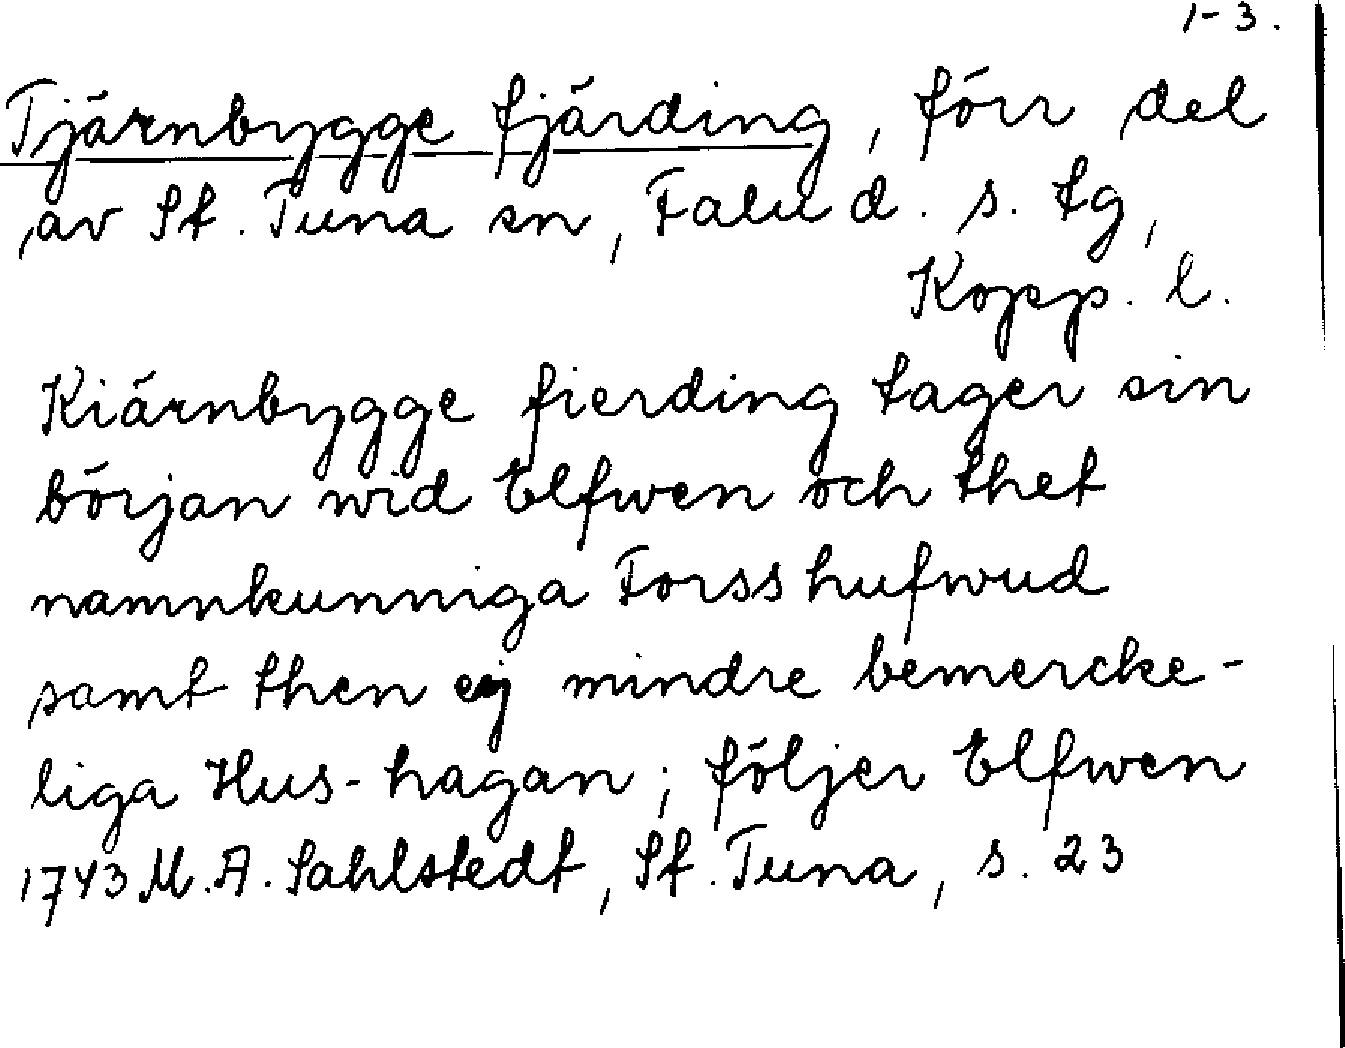 1-3.
Tjärnbygge fjärding, förr del
av St. Tuna sn, Falu d. s. tg,
Kopp. l.
Kiärnbygge fierding tager sin
början wid Elfwen och thet
namnkunniga Forsshufwud
samt then ej mindre bemercke-
liga Hus-hagan; följer Elfwen
1743 M.A. Sahlstedt, St. Tuna, s. 23